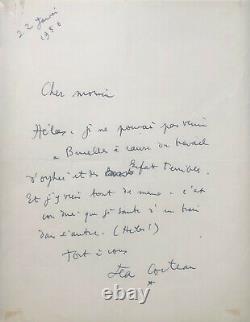 22 Janvier
1950
Cher monsieur
Hélas, je ne pouvais pas venir
à Bruxelles à cause du travail
d'orphée et des Enfants terribles.
Et j'y vais tout de même. c'est
vous dire que je saute d'un train
dans l'autre. (Hélas!)
Tout à vous
Jean Cocteau
*
© hubb.com